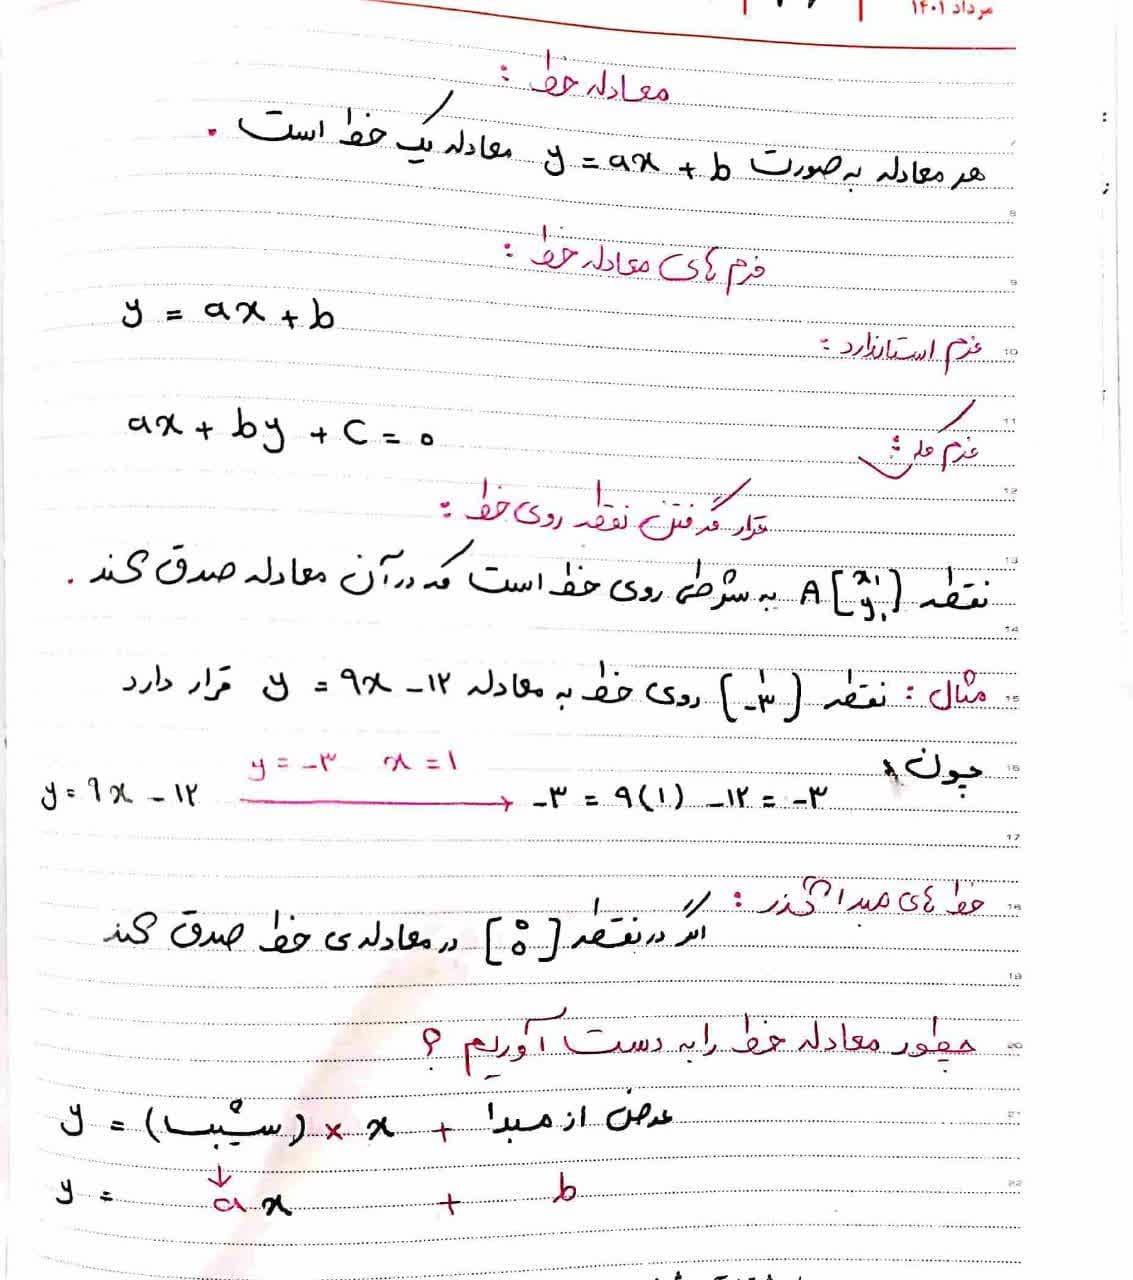 مرداد ۱۴۰۱
معادله خط :
هر معادله به صورت y = ax + b معادله یک خط است .
فرم های معادله خط :
فرم استاندارد : y = ax + b
فرم کلی : ax + by + c = 0
قرار گرفتن نقطه روی خط :
نقطه A [x₁ y₁] به شرطی روی خط است که در آن معادله صدق کند .
مثال : نقطه [۱ -۳] روی خط به معادله y = 9x - ۱۲ قرار دارد
چون
y = 9x - ۱۲ y = -۳ x = ۱ → -۳ = 9(۱) - ۱۲ = -۳
خط های مبدا گذر :
اگر در نقطه [0 0] در معادله ی خط صدق کند
چطور معادله خط را به دست آوریم ؟
y = (شیب) × x + عرض از مبدا
↓
y = a x + b
8
9
10
11
12
13
14
15
16
17
18
19
20
21
22